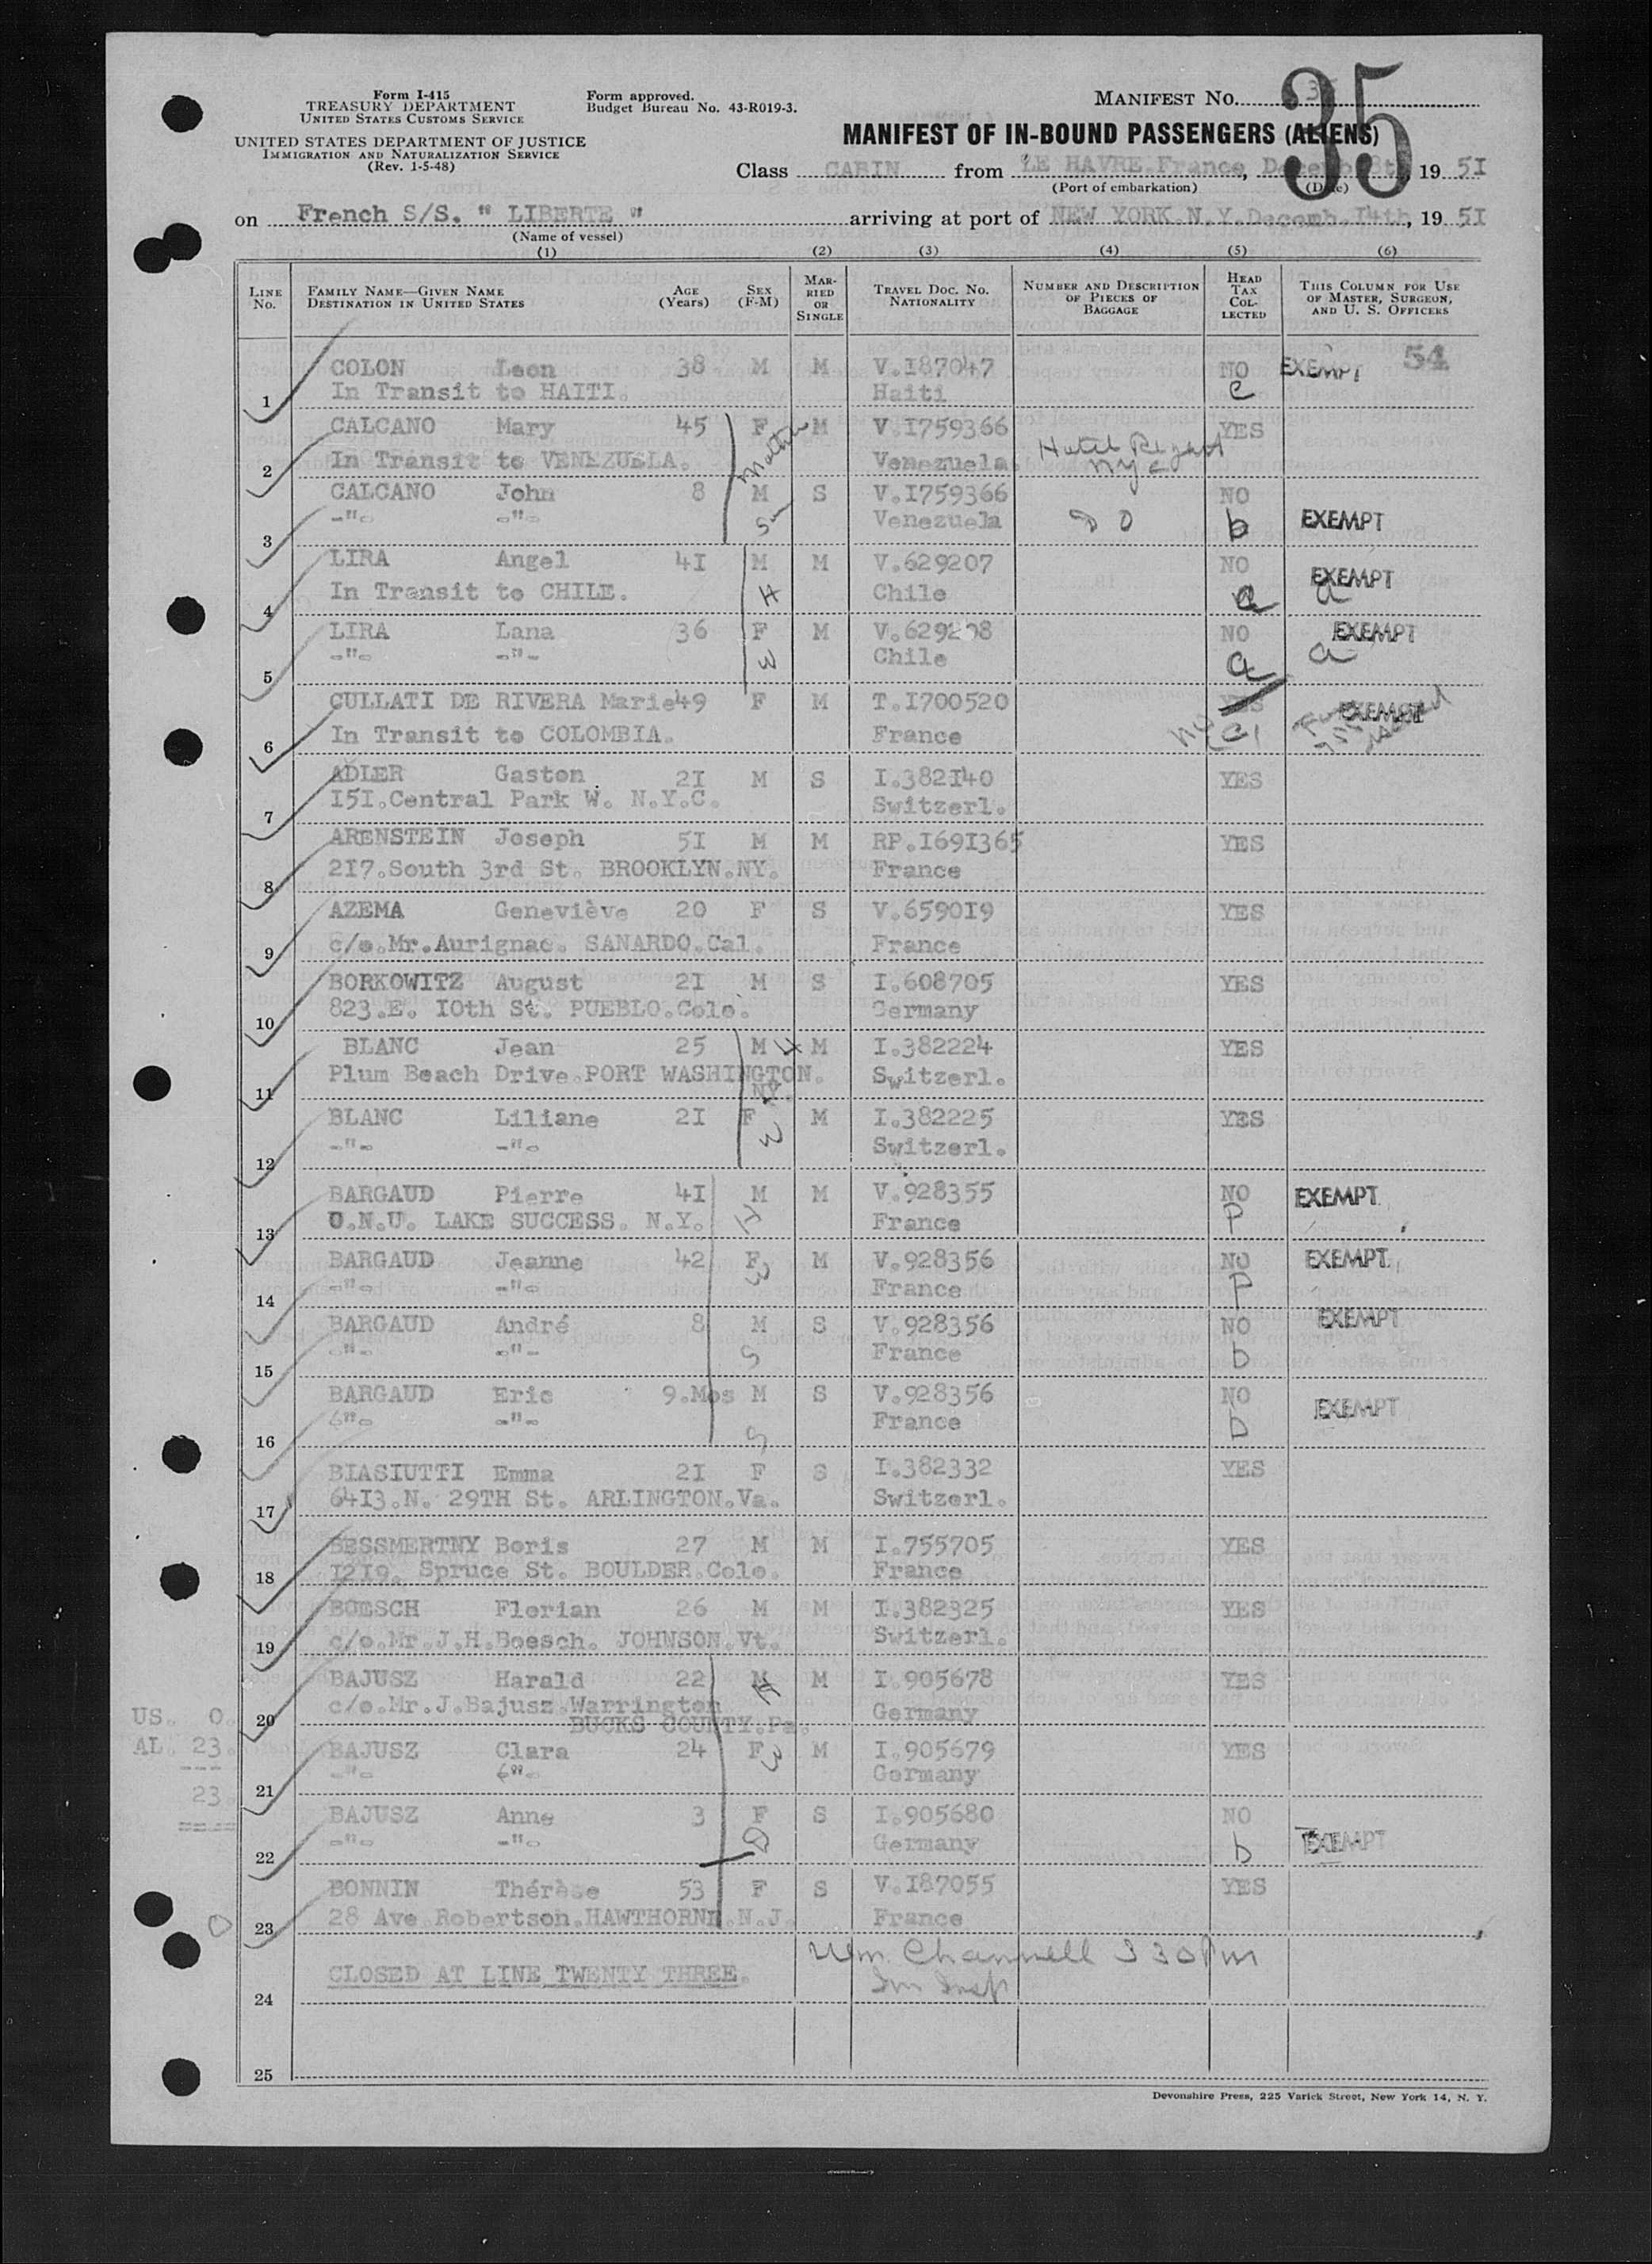 Form I-415
TREASURY DEPARTMENT
UNITED STATES CUSTOMS SERVICE
UNITED STATES DEPARTMENT OF JUSTICE
IMMIGRATION AND NATURALIZATION SERVICE
(Rev. 1-5-48)
Form approved.
Budget Bureau No. 43-R019-3.
MANIFEST No. 35
35
MANIFEST OF IN-BOUND PASSENGERS (ALIENS)
Class CABIN from LE HAVRE.France, Decemb 8th, 19 5I
(Port of embarkation) (Date)
on French S/S. " LIBERTE " arriving at port of NEW YORK.N.Y.Decemb.I4th, 19 5I
(Name of vessel)
(1) (2) (3) (4) (5) (6)
LINE No. FAMILY NAME—GIVEN NAME DESTINATION IN UNITED STATES AGE (Years) SEX (F-M) MARRIED OR SINGLE TRAVEL DOC. No. NATIONALITY NUMBER AND DESCRIPTION OF PIECES OF BAGGAGE HEAD TAX COLLECTED THIS COLUMN FOR USE OF MASTER, SURGEON, AND U. S. OFFICERS
COLON Leon 38 M M V.I87047 NO EXEMPT 54
1 In Transit to HAITI. Haiti c
CALCANO Mary 45 F Mother M V I759366 YES
2 In Transit to VENEZUELA. Venezuela. Hotel NYC
CALCANO John 8 M S V.I759366 NO
3 -"- -"- Son Venezuela D O b EXEMPT
LIRA Angel 4I M M V.629207 NO EXEMPT
4 In Transit to CHILE. H Chile a a
LIRA Lana 36 F M V.629208 NO EXEMPT
5 -"- -"- W Chile a a
CULLATI DE RIVERA Marie 49 F M T.I700520 YES EXEMPT
6 In Transit to COLOMBIA. France NO
ADLER Gaston 2I M S I.382I40 YES
7 I5I.Central Park W. N.Y.C. Switzerl.
ARENSTEIN Joseph 5I M M RP.I69I365 YES
8 2I7.South 3rd St. BROOKLYN.NY. France
AZEMA Geneviève 20 F S V.6590I9 YES
9 c/o.Mr.Aurignac. SANARDO.Cal. France
BORKOWITZ August 2I M S I.608705 YES
10 823.E. I0th St. PUEBLO.Colo. Germany
BLANC Jean 25 M H M I.382224 YES
11 Plum Beach Drive.PORT WASHINGTON. NY. Switzerl.
BLANC Liliane 2I F M I.382225 YES
12 -"- -"- W Switzerl.
BARGAUD Pierre 4I M M V.928355 NO EXEMPT
13 O.N.U. LAKE SUCCESS. N.Y. H France P
BARGAUD Jeanne 42 F M V.928356 NO EXEMPT
14 -"- -"- W France P
BARGAUD André 8 M S V.928356 NO EXEMPT
15 -"- -"- S France b
BARGAUD Eric 9.Mos M S V.928356 NO EXEMPT
16 -"- -"- S France b
BIASIUTTI Emma 2I F S I.382332 YES
17 64I3.N. 29TH St. ARLINGTON.Va. Switzerl.
BESSMERTNY Boris 27 M M I.755705 YES
18 I2I9. Spruce St. BOULDER.Colo. France
BOESCH Florian 26 M M I.382325 YES
19 c/o.Mr.J.H.Boesch. JOHNSON.Vt. Switzerl.
BAJUSZ Harald 22 M H M I.905678 YES
20 c/o.Mr.J.Bajusz.Warrington Germany
BUCKS COUNTY.Pa.
BAJUSZ Clara 24 F W M I.905679 YES
21 -"- -"- Germany
BAJUSZ Anne 3 F S I.905680 NO
22 -"- -"- D Germany b EXEMPT
BONNIN Thérèse 53 F S V.I87055 YES
23 28 Ave Robertson.HAWTHORNE.N.J. France
US. 0.
AL. 23.
---
23.
====
Wm. Channell 3 30 Pm
Im Insp
CLOSED AT LINE TWENTY THREE.
24
25
Devonshire Press, 225 Varick Street, New York 14, N. Y.